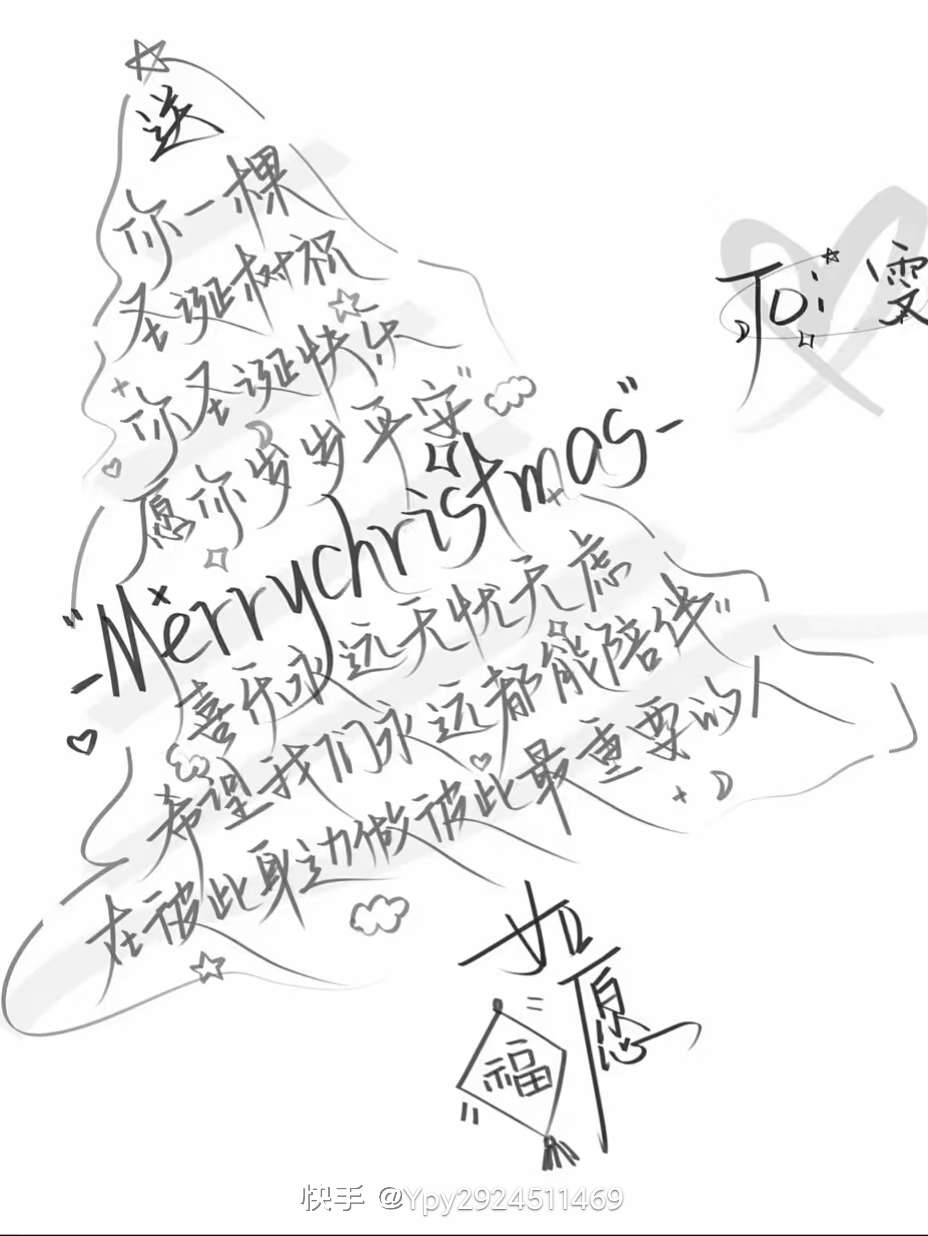 送
你一棵
圣诞树祝
你圣诞快乐
愿你岁岁平安"
"-Merrychristmas-"
喜乐永远无忧无虑
希望我们永远都能陪伴"
在彼此身边做彼此最重要的人
To: 雯
如愿
福
快手 @Ypy2924511469